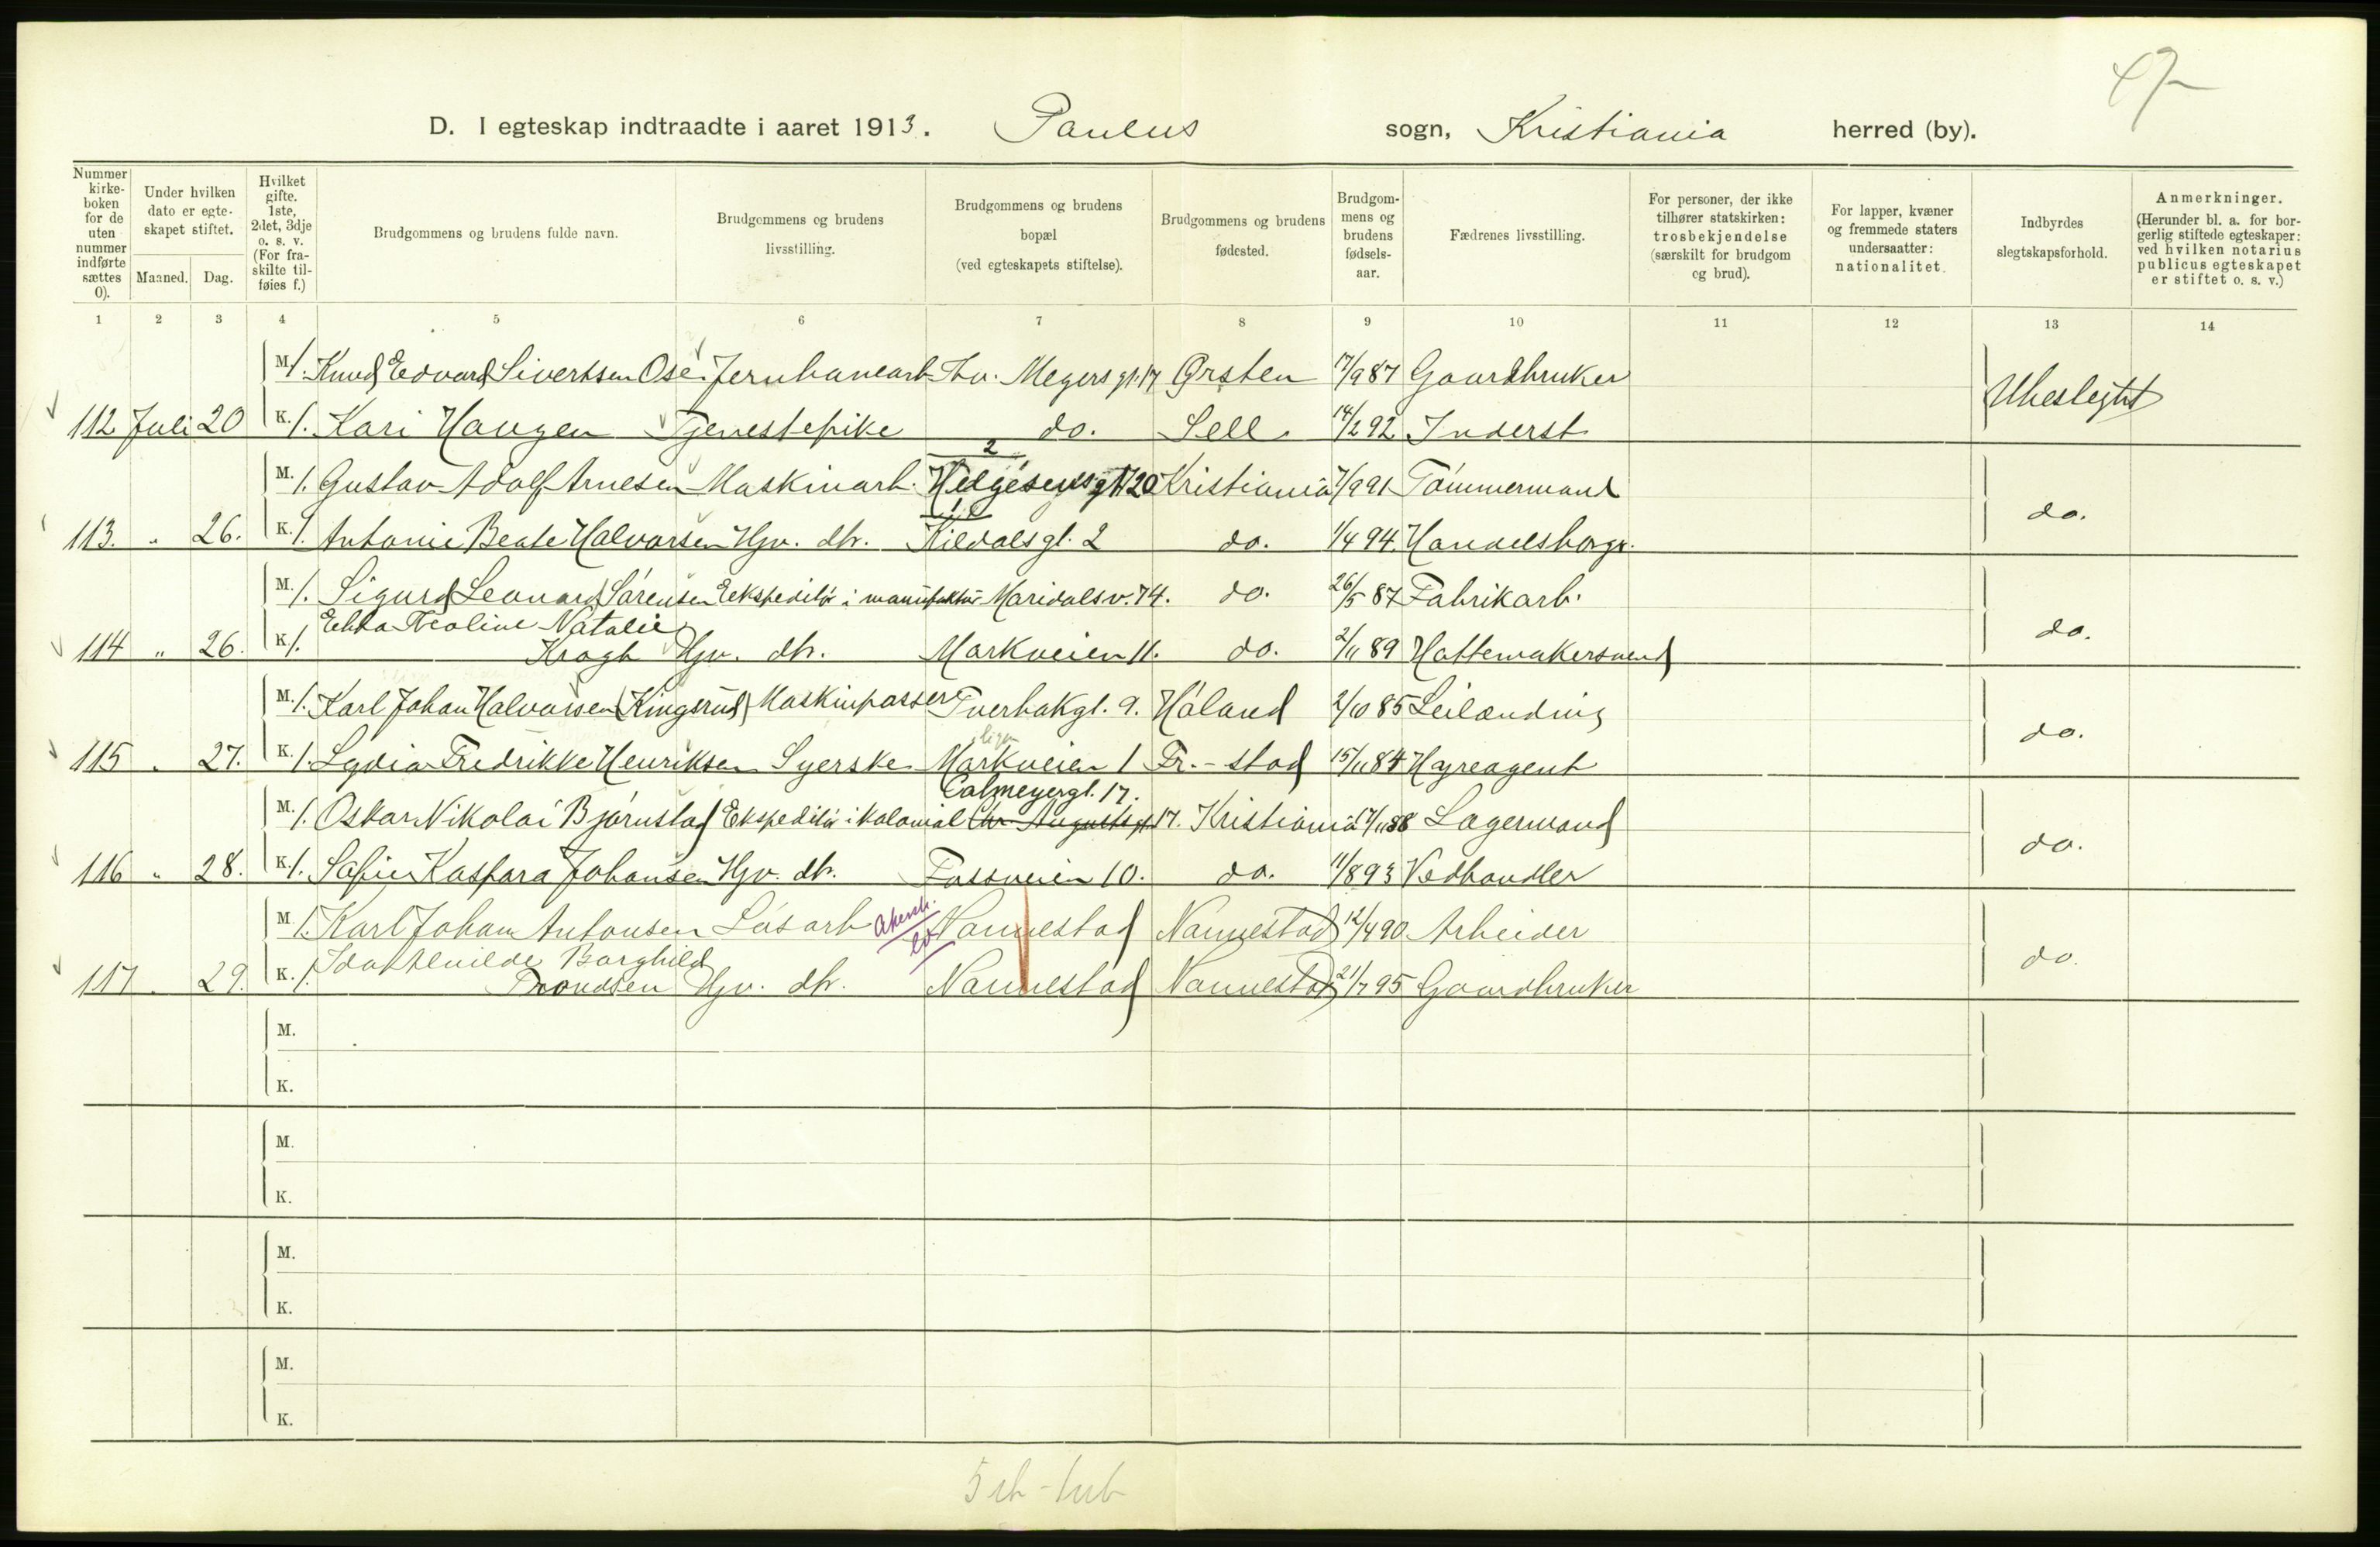 D. I egteskap indtraadte i aaret 1913. Paulus sogn, Kristiania herred (by).
Nummer kirkeboken for de uten nummer indførte sættes 0).
Under hvilken dato er egteskapet stiftet.
Maaned. Dag.
Hvilket gifte. 1ste, 2det, 3dje o. s. v. (For fraskilte tilføies f.)
Brudgommens og brudens fulde navn.
Brudgommens og brudens livsstilling.
Brudgommens og brudens bopæl (ved egteskapets stiftelse).
Brudgommens og brudens fødested.
Brudgommens og brudens fødselsaar.
Fædrenes livsstilling.
For personer, der ikke tilhører statskirken: trosbekjendelse (særskilt for brudgom og brud).
For lapper, kvæner og fremmede staters undersaatter: nationalitet.
Indbyrdes slegtskapsforhold.
Anmerkninger. (Herunder bl. a. for borgerlig stiftede egteskaper: ved hvilken notarius publicus egteskapet er stiftet o. s. v.)
1 2 3 4 5 6 7 8 9 10 11 12 13 14
M. 1. Knud Edvard Sivertsen Ose Jernbanearb. Thv. Meyers gt. 17 Ørsten 17/9 87 Gaardbruker
112 Juli 20 K. 1. Kari Haugen Tjenestepike do. Sell 14/2 92 Inderst Ubeslegtet
M. 1. Gustav Adolf Arnesen Maskinarb. Helgesensgt 20 Kristiania 7/9 91 Tømmermand
113. " 26. K. 1. Antonie Beate Halvorsen Hjv. dtr. Kildalsgt. 2 do. 1/4 94. Handelsborgr. do.
M. 1. Sigurd Leonard Sørensen Ekspeditør i manufaktur Maridalsv. 74. do. 26/5 87 Fabrikarb.
114 " 26. K. 1. Ebba Nicoline Natalie Krogh Hjv. dtr. Markveien 11. do. 2/11 89 Hattemakersvend do.
M. 1. Karl Johan Halvorsen (Kingsrud) Maskinpasser Tverbakgt. 9. Høland 2/10 85 Leilænding
115 " 27. K. 1. Lydia Fredrikke Henriksen Syerske Markveien 1 Fr.-stad 15/11 84 Hyreagent do.
Calmeyergt. 17.
M. 1. Oskar Nikolai Bjørnstad Ekspeditør i kolonial Chr. Augustsgt. 17. Kristiania 17/11 88 Lagermand
116 " 28. K. 1. Sofie Kaspara Johansen Hjv. dtr. Fossveien 10. do. 11/8 93 Vedhandler do.
M. 1. Karl Johan Antonsen Løsarb. Akersh. Nannestad Nannestad 12/4 90 Arbeider
117 " 29. K. 1. Ida Alvilde Borghild Trondsen Hjv. dtr. Nannestad Nannestad 21/7 95 Gaardbruker do.
M.
K.
M.
K.
M.
K.
M.
K.